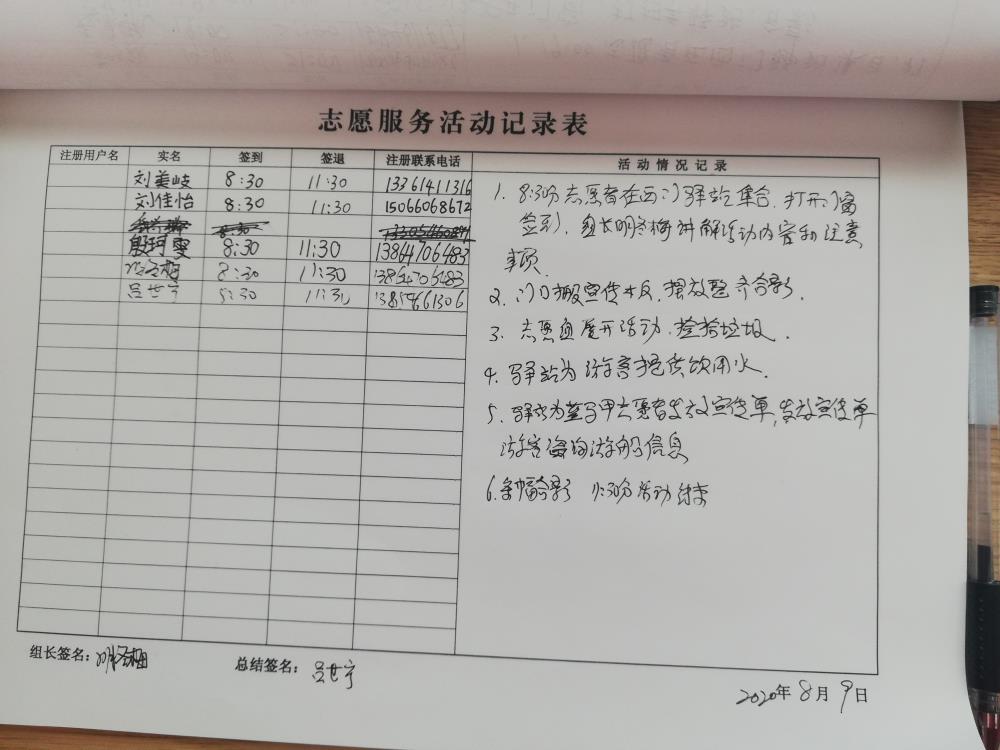 志愿服务活动记录表
注册用户名 实名 签到 签退 注册联系电话 活动情况记录
刘美岐 8:30 11:30 13361411316
刘佳怡 8:30 11:30 15066068672
殷珂雯 8:30 11:30 13864706483
8:30 11:30 13864706483
吕世宁 8:30 11:30
1. 8:30分志愿者在西门驿站集合.打开门窗
签到,组长明冬梅讲解活动内容和注意
事项.
2. 门口搬宣传木板.摆放整齐合影.
3. 志愿者展开活动.捡拾垃圾.
4. 驿站为游客提供饮用水.
5. 志愿者发放宣传单,发放宣传单
游客咨询游船信息
6.条幅合影 11:30分活动结束
组长签名: 明冬梅
总结签名: 吕世宁
2020年8月9日